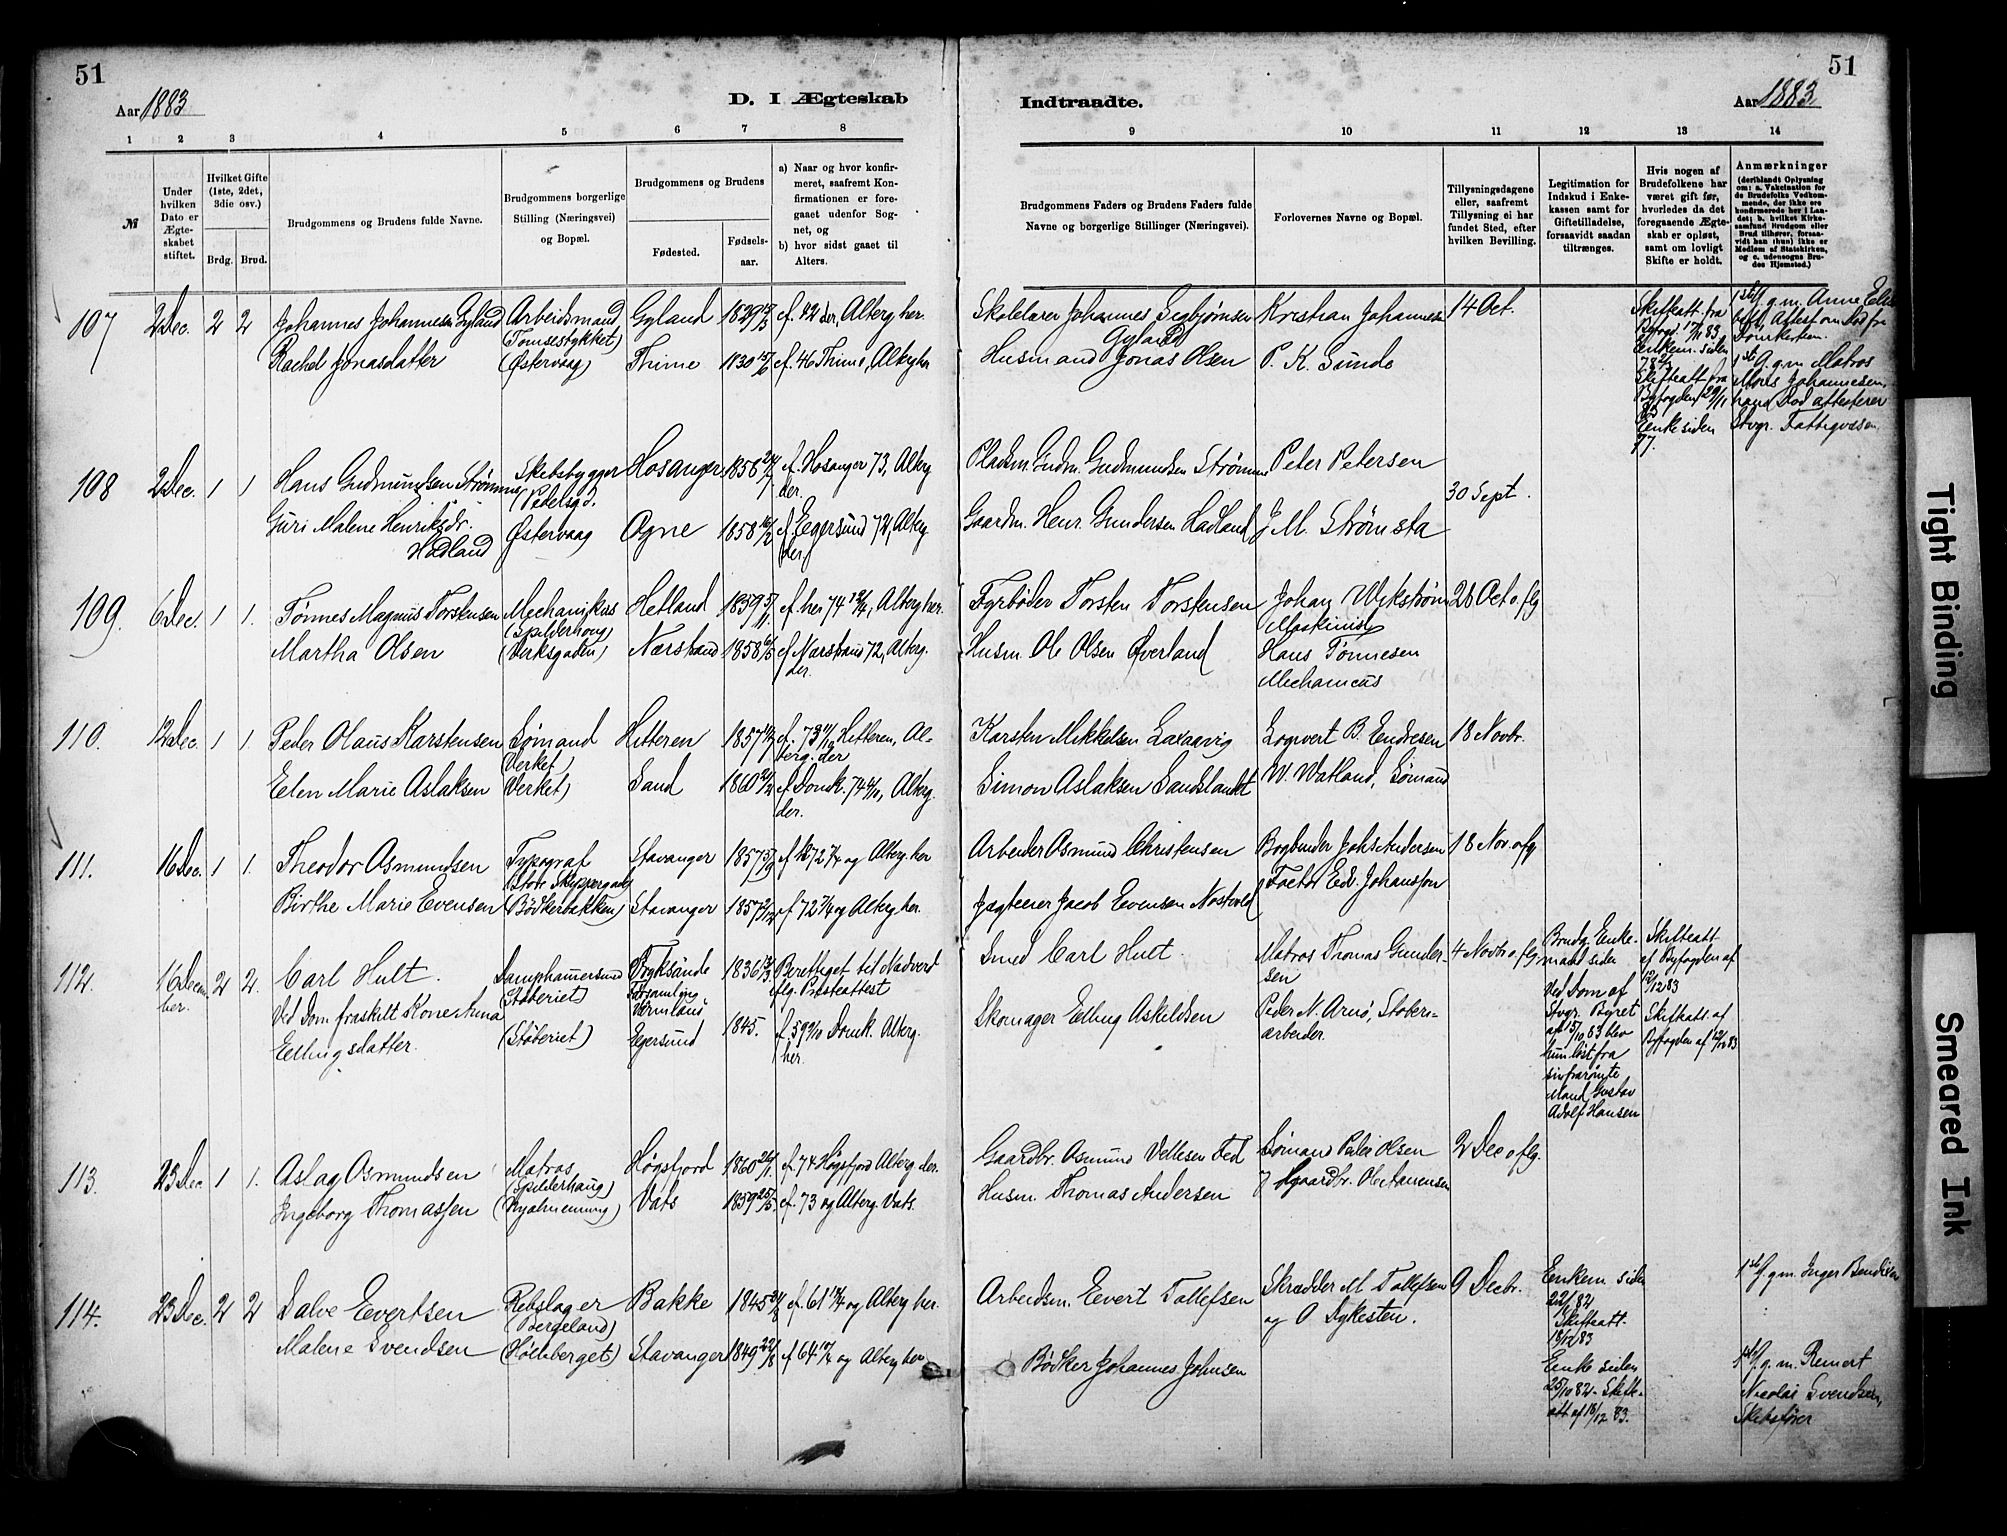 51
51
Aar 1883
D. I Ægteskab
Indtraadte.
Aar 1883
1 2 3 4 5 6 7 8
9 10 11 12 13 14
№
Under hvilken Dato er Ægteskabet stiftet.
Hvilket Gifte (1ste, 2det, 3die osv.)
Brdg. Brud.
Brudgommens og Brudens fulde Navne.
Brudgommens borgerlige Stilling (Næringsvei) og Bopæl.
Brudgommens og Brudens
Fødested.
Fødselsaar.
a) Naar og hvor konfirmeret, saafremt Konfirmationen er foregaaet udenfor Sognet, og
b) hvor sidst gaaet til Alters.
Brudgommens Faders og Brudens Faders fulde Navne og borgerlige Stillinger (Næringsvei).
Forlovernes Navne og Bopæl.
Tillysningsdagene eller, saafremt Tillysning ei har fundet Sted, efter hvilken Bevilling.
Legitimation for Indskud i Enkekassen samt for Giftetilladelse, forsaavidt saadan tiltrænges.
Hvis nogen af Brudefolkene har været gift før, hvorledes da det foregaaende Ægteskab er opløst, samt om lovligt Skifte er holdt.
Anmærkninger
(deriblandt Oplysning om: a. Vakcination for de Brudefolks Vedkommende, der ikke ere konfirmerede her i Landet; b. hvilket Kirkesamfund Brudgom eller Brud tilhører, forsaavidt han (hun) ikke er Medlem af Statskirken, og c. udensogns Brudes Hjemsted.)
107 2 Dec. 2 2 Johannes Johannesen Gyland Arbeidsmand Gyland 1829 Alterg. her. Skolelærer Johannes Sigbjørnsen Gyland Kristian Johannesen 14 Oct. Skifteatt. fra
Rachel Jonasdatter (Østervaag) Thime 1830 cf. 46 Thime, Alterg her Husmand Jonas Olsen P. K. Sunde
1ste G. g. m. Matros
108 2 Dec. 1 1 Hans Gudmundsen Strømme Skibsbygger Hosanger 1856 cf. Hosanger 73, Alterg der. Pladsm. Gudm. Gudmundsen Strømme Peter Petersen
30 Sept.
Guri Malene Henriksdr. Hadland Østervaag Ogne 1858 cf. Egersund 72, Alterg. der. Gaardm. Henr. Gundersen Hadland J. M. Strømsta
109. 6 Dec. 1 1. Tønnes Magnus Torstensen Mechanikus Hetland 1859 cf. her 74, Alterg her. Fyrbøder Torsten Torstensen Johan Wikstrøm Maskinist 28 Oct o. flg
Martha Olsen (Verksgaden) Nærstrand 1858 cf Nærstrand 72, Alterg. der. Husm. Ole Olsen Øverland Hans Tønnesen Mechanicus
110. 12 Dec. 1 1. Peder Olaus Karstensen Sømand (Verket) Hitteren 1857 cf. 73 Hitteren, Alterg. der Karsten Mikkelsen Laxaavig B. Endresen 18 Novbr.
Elen Marie Aslaksen (Verket) Sand 1860 cf Domk. 74, Alterg. der. Simon Aslaksen W. Watland, Sømand
111. 16 Dec. 1 1. Theodor Osmundsen Typograf Stavanger 1857 cf 72 og Alterg. her Arbeider Osmund Christensen Bogbinder Johs Andersen 18 Nov. o flg
Birthe Marie Evensen (Bødkerbakken) Stavanger 1857 cf 72 og Alterg her. Jægteeier Jacob Evensen Factor Ed. Johansson
112. 16 December. 2 2. Carl Hult. (Støberiet) Fryksände Forsamling Värmland 1836 Berettiget til Nadverd flg. Præsteattest Smed Carl Hult. Matros Thomas Gundersen 4 Novbr o. flg. Brudg. Enkemand siden Skifteatt af Byfogden af
Ved Dom fraskilt Kone Anna Ellingsdatter. (Støberiet) Egersund 1845. cf. 59 Domk. Alterg. her. Skomager Elling Askildsen Peder N. Arnø, Støberiarbeider.
Ved Dom af Stvgr. Byret af 15/10 83 blev hun løst fra sin frarømte Mand Gustav Adolf Hansen
Skifteatt. af Byfogden af
113. 23 Dec 1 1. Aslag Osmundsen Matros (Spilderhaug) Høgsfjord 1860 cf. 74 Høgsfjord Alterg. der. Gaardbr. Osmund Sømand Peder Olsen 2 Dec o flg.
Ingeborg Thomassen Vats 1859 cf. 73 og Alterg. Vats. Husm. Thomas Andersen
114. 23 Dec. 2 2 Salve Evertsen Rebslager (Bergeland) Bakke 1845 cf. 61 og Alterg her. Arbeidsm. Evert Tollefsen Skrædder M Tollefsen og O Dykesten. 9 Decbr. Enkem siden Skifteatt. 1ste G. g m. Inger
Malene Svendsen Stavanger 1849 cf 64 og Alterg her Bødker Johannes Johnsen Enke siden 25/10 82. Skifteatt af 18/12 83. 1ste G. g. m. Remert Nicolai Svendsen, Skibsfører
Tight Binding
Smeared Ink